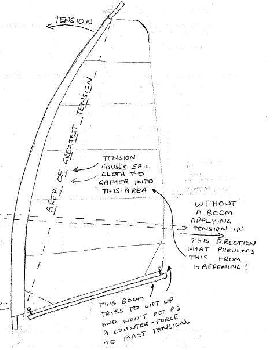 TENSION
LINE OF GREATEST TENSION
TENSION
CAUSES SAIL
CLOTH TO
GATHER INTO
THIS AREA
WITHOUT
A BOOM
APPLYING
TENSION IN
THIS DIRECTION
WHAT PREVENTS
THIS FROM
HAPPENING?
THIS BOOM
TRIES TO LIFT UP
AND WON'T ACT AS
A COUNTER-FORCE
TO MAST TENSION